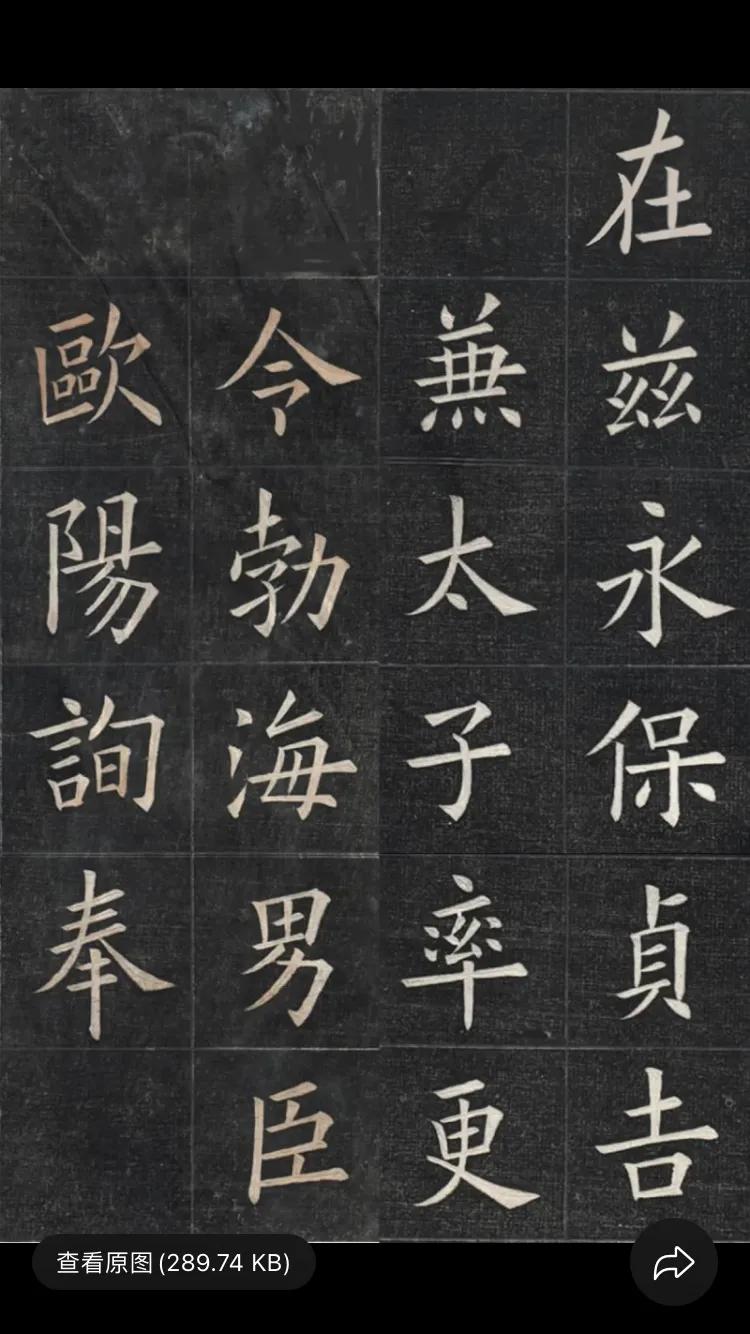 在茲永保貞吉
兼太子率更
令勃海男臣
歐陽詢奉
查看原图 (289.74 KB)